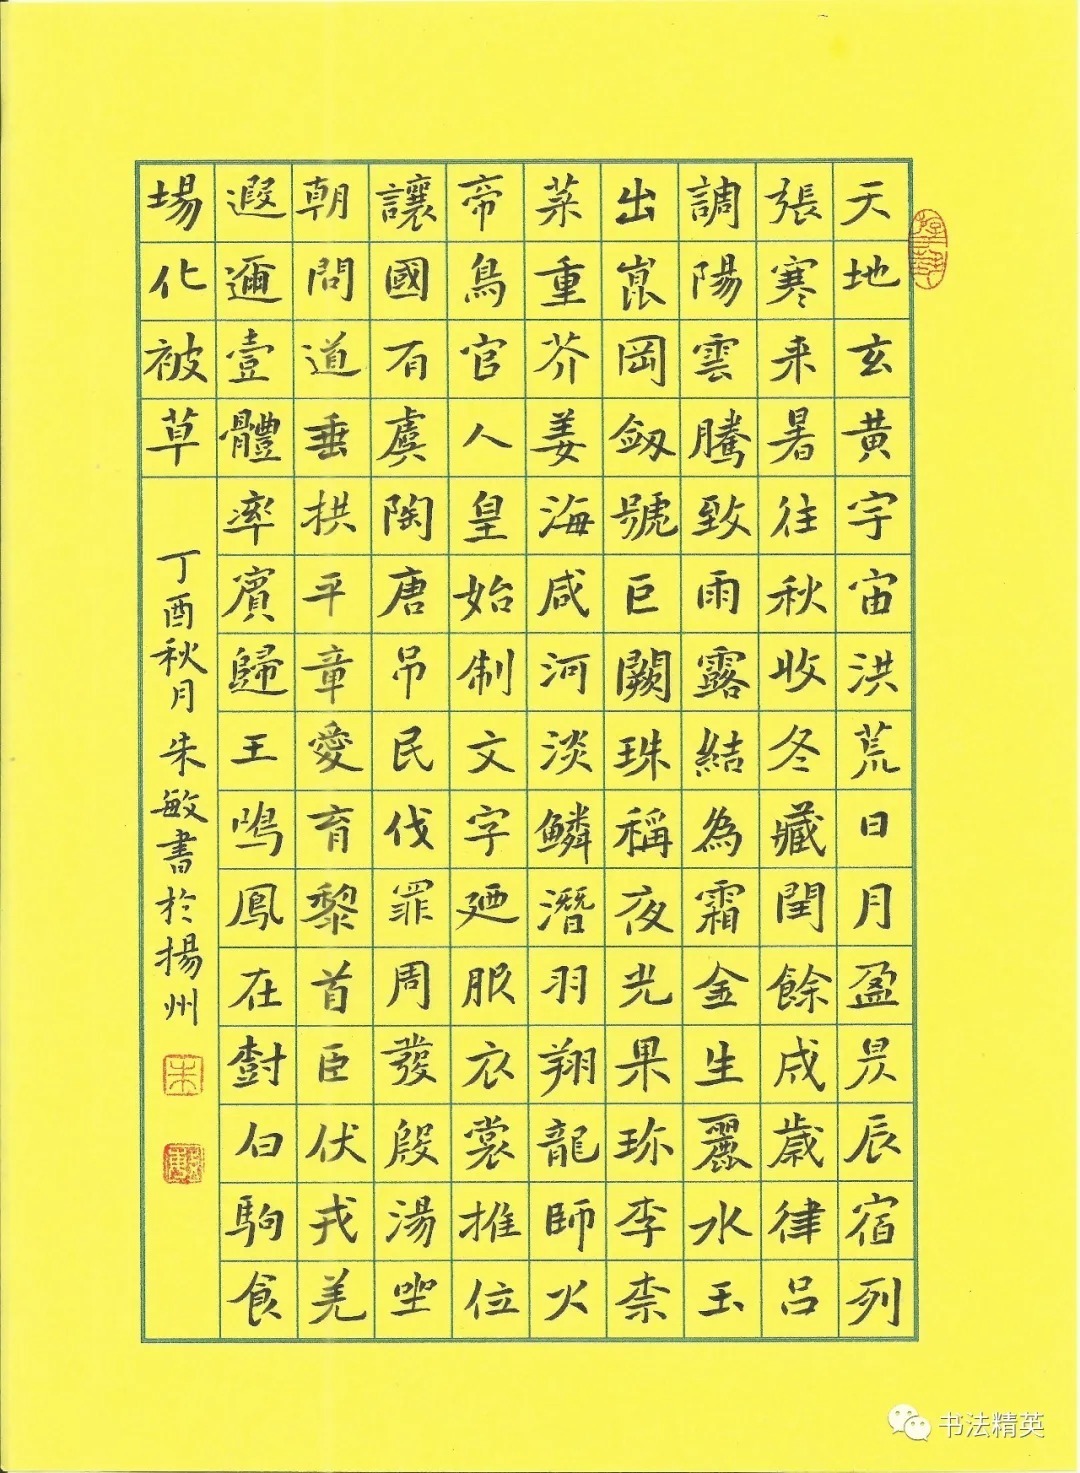 天地玄黄宇宙洪荒日月盈昃辰宿列
張寒来暑往秋收冬藏閏餘成歲律吕
調陽雲騰致雨露結為霜金生麗水玉
出崑岡劔號巨闕珠稱夜光果珍李柰
菜重芥姜海咸河淡鱗潛羽翔龍師火
帝鳥官人皇始制文字廼服衣裳推位
讓國有虞陶唐吊民伐罪周發殷湯坐
朝問道垂拱平章愛育黎首臣伏戎羌
遐邇壹體率賓歸王鳴鳳在樹白駒食
場化被草
丁酉秋月朱敏書於揚州
朱
书法精英